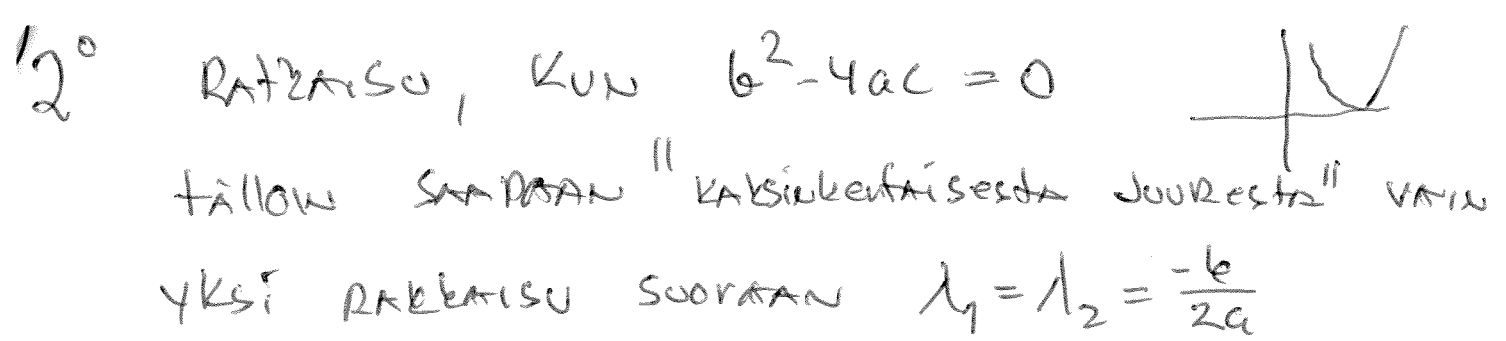 2° RATKAISU, KUN b²-4ac = 0
TÄLLÖIN SAADAAN "KAKSINKERTAISESTA JUURESTA" VAIN
YKSI RATKAISU SUORAAN λ₁ = λ₂ = -b/2a